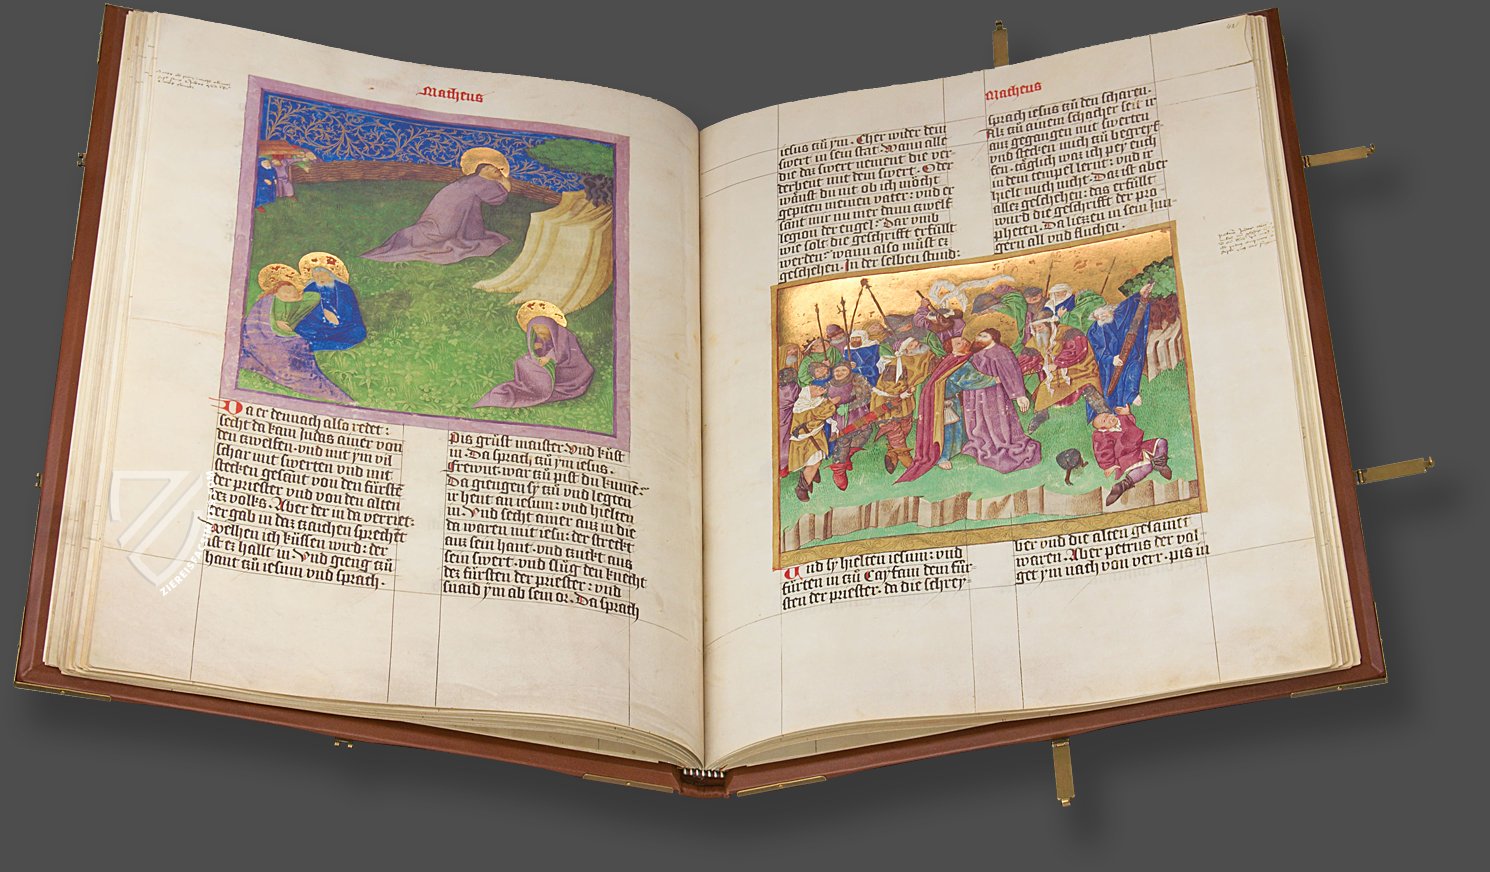 Matheus
Da er dennach also redet:
secht da kam Judas ainer von
den zwelfen. vnd mit ym vil
schar mit swerten vnd mit
stecken gesant von den fürstē
der priester vnd von den alten
dez volks. Aber der in da verriet:
der gab in daz zaichen sprechēt
Welhen ich küssen wird: der
ist ez hallt in. Vnd gieng zů
hant zů iesum vnd sprach.
Pis grůst maister. Vnd kůst
in. Da sprach zů ym iesus.
frewnt. war zů pist du kumē:
Da giengen sy zů vnd legten
ir hent an iesum: vnd hielten
in. Vnd secht ainer auz in die
da waren mit iesu: der streckt
aus sein hant. vnd zuckt aus
sein swert. vnd slůg den knecht
dez fürsten der priester: vnd
snaid ym ab sein or. Da sprach
Matheus
iesus zů ym. Cher wider dein
swert in sein stat. Wann alle
die daz swert nement die ver-
derbent mit dem swert. Oder
wanst du nit ob ich möcht
gepiten meinen vater: vnd er
sant mir nu mer dann zwelf
legion der engel: Dar vmb
wie solt die geschrifft erfüllt
werden: wann also můst ez
geschehen. In der selben stund:
sprach iesus zů den scharen.
Als zů ainem schacher seit ir
auz gegangen mit swerten
vnd stecken mich zů begreyf-
fen. täglich waz ich pey euch
in dem tempel lernt: vnd ir
hielt mich nicht. Daz ist aber
allez geschehen: daz erfüllt
wurd die geschrifft der pro-
pheten. Da liezzen in sein iun-
gern all vnd fluchen.
Und sy hielten iesum: vnd
fürten in zů Cayfam dem für-
sten der priester. da die schrey-
ber vnd die alten gesamnt
waren. Aber petrus der vol
get ym nach von verr. pis in